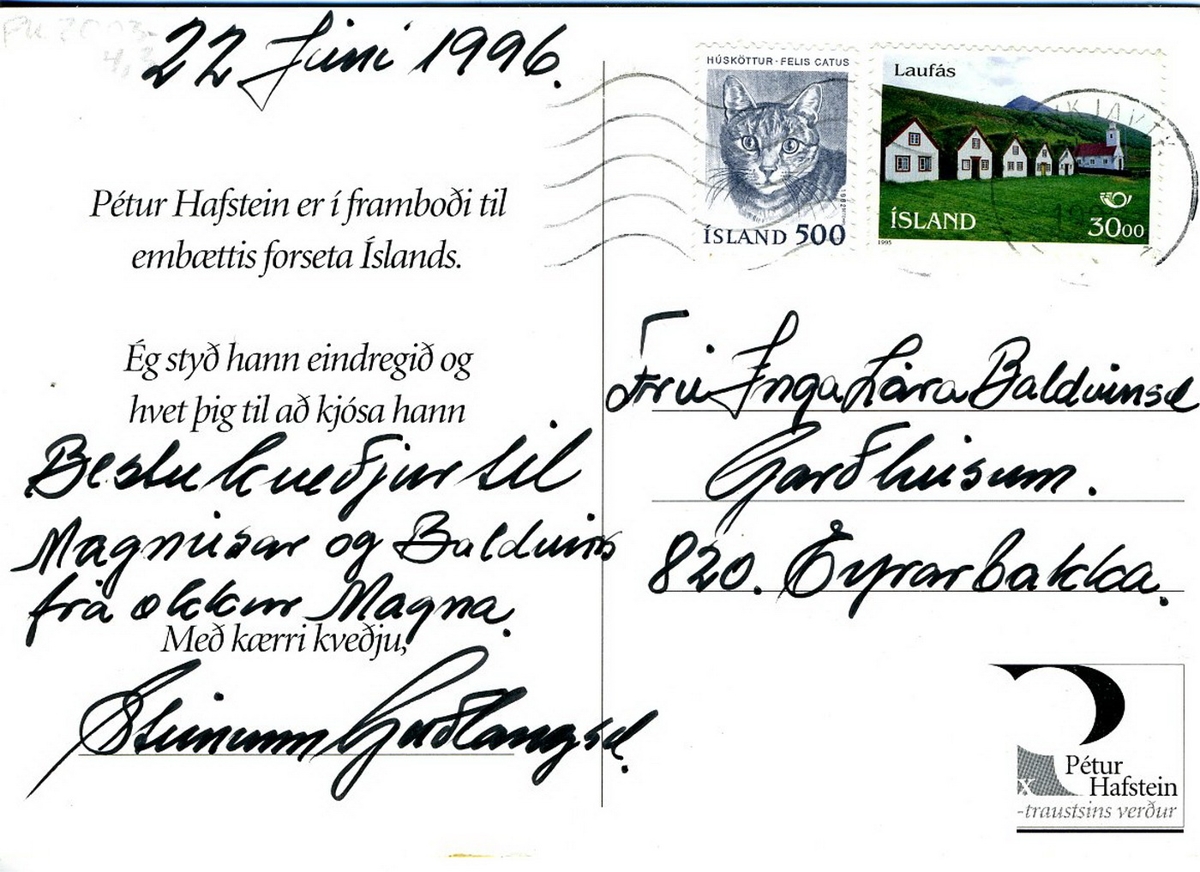 22 Júní 1996.
Pétur Hafstein er í framboði til
embættis forseta Íslands.
Ég styð hann eindregið og
hvet þig til að kjósa hann
Bestu kveðjur til
Magnúsar og Baldvins
frá okkur Magna.
Með kærri kveðju,
Steinunn Guðlaugsd.
HÚSKÖTTUR · FELIS CATUS
1982
ÍSLAND 500
Laufás
ÍSLAND
3000
1995
Frú Inga Lára Baldvinsd
Garðhúsum.
820. Eyrarbakka.
x
Pétur
Hafstein
-traustsins verður